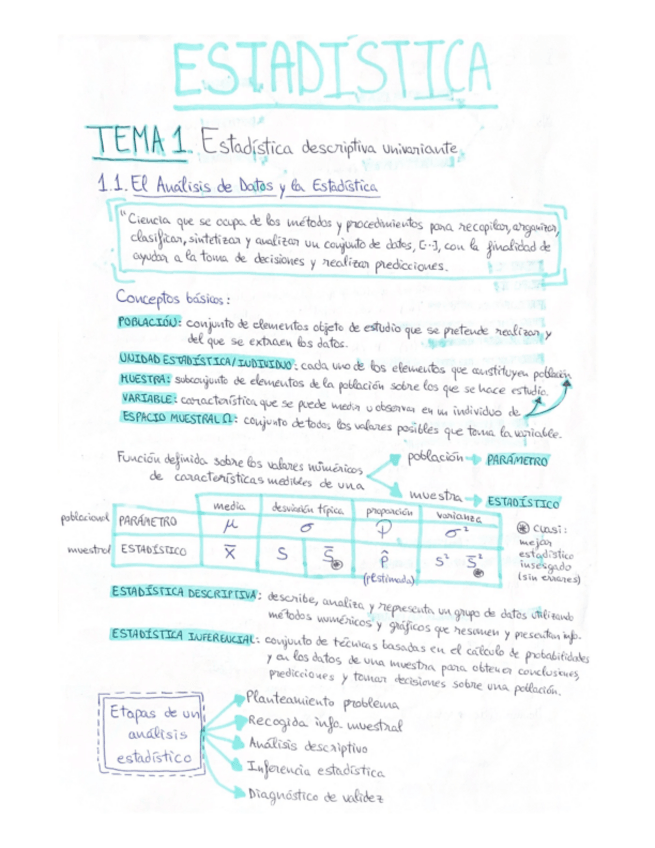 ESTADÍSTICA
TEMA 1. Estadística descriptiva univariante
1.1. El Análisis de Datos y la Estadística
"Ciencia que se ocupa de los métodos y procedimientos para recopilar, organizar,
clasificar, sintetizar y analizar un conjunto de datos, [...], con la finalidad de
ayudar a la toma de decisiones y realizar predicciones.
Conceptos básicos:
POBLACIÓN: conjunto de elementos objeto de estudio que se pretende realizar y
del que se extraen los datos.
UNIDAD ESTADÍSTICA/INDIVIDUO: cada uno de los elementos que constituyen población
MUESTRA: subconjunto de elementos de la población sobre los que se hace estudio.
VARIABLE: característica que se puede medir u observar en un individuo de
ESPACIO MUESTRAL Ω: conjunto de todos los valores posibles que toma la variable.
Función definida sobre los valores numéricos
de características medibles de una
población → PARÁMETRO
muestra → ESTADÍSTICO
media desviación típica proporción varianza
poblacional PARÁMETRO μ σ P σ²
muestral ESTADÍSTICO X̄ S S̄* p̂ S² S̄²*
(p estimada)
* cuasi:
mejor
estadístico
insesgado
(sin errores)
ESTADÍSTICA DESCRIPTIVA: describe, analiza y representa un grupo de datos utilizando
métodos numéricos y gráficos que resumen y presentan info.
ESTADÍSTICA INFERENCIAL: conjunto de técnicas basadas en el cálculo de probabilidades
y en los datos de una muestra para obtener conclusiones,
predicciones y tomar decisiones sobre una población.
Etapas de un
análisis
estadístico
Planteamiento problema
Recogida info muestral
Análisis descriptivo
Inferencia estadística
Diagnóstico de validez